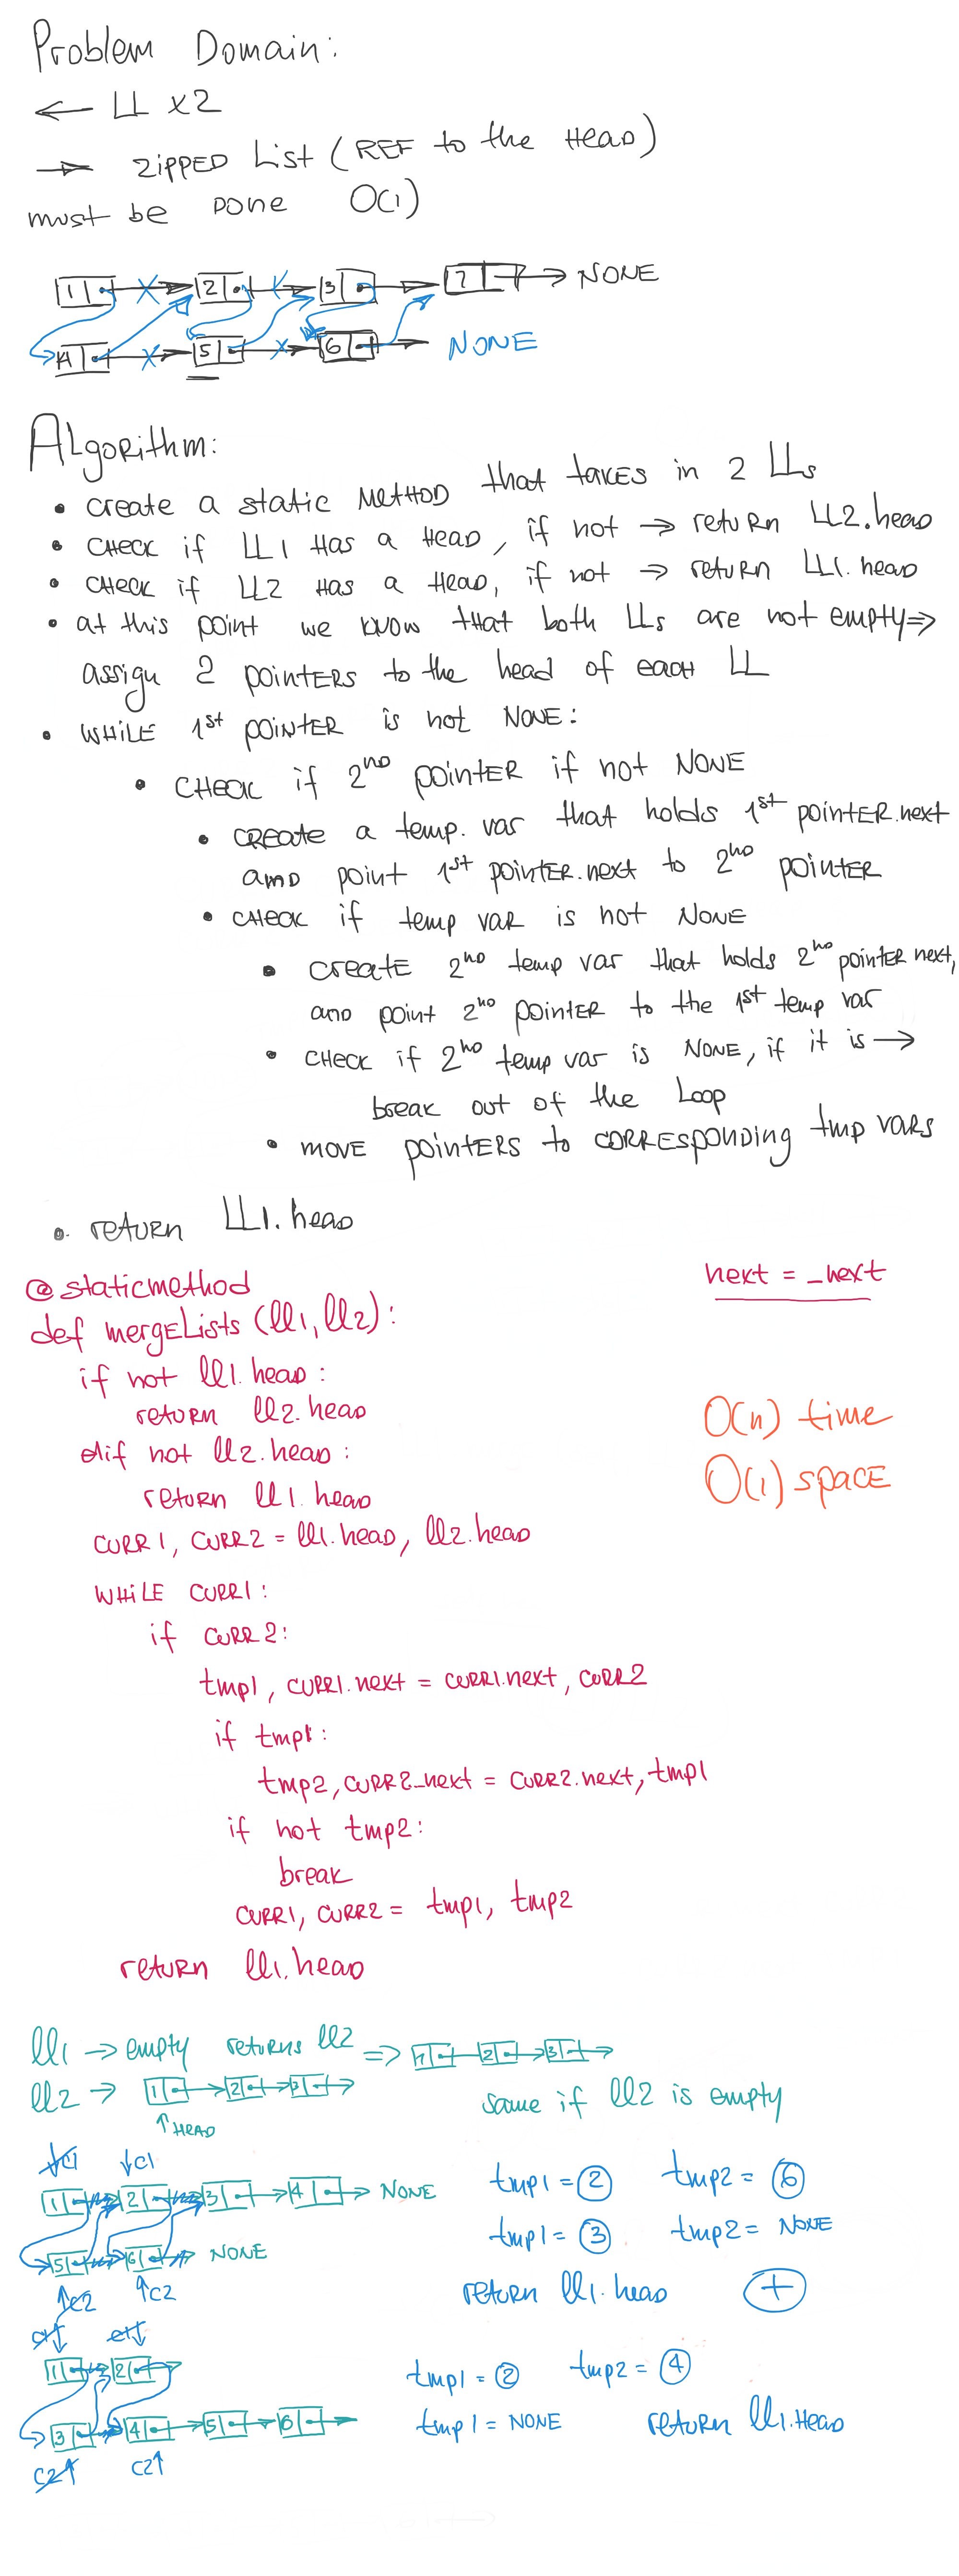 Problem Domain:
← LL x2
→ zipped List (REF to the Head)
must be done O(1)
1 2 3 7 → NONE
4 5 6 → NONE
Algorithm:
• create a static method that takes in 2 LLs
• check if LL1 has a head, if not → return LL2.head
• check if LL2 has a head, if not → return LL1.head
• at this point we know that both LLs are not empty ⇒
assign 2 pointers to the head of each LL
• while 1st pointer is not NONE:
• check if 2nd pointer if not NONE
• create a temp. var that holds 1st pointer.next
and point 1st pointer.next to 2nd pointer
• check if temp var is not NONE
• create 2nd temp var that holds 2nd pointer next,
and point 2nd pointer to the 1st temp var
• check if 2nd temp var is NONE, if it is →
break out of the Loop
• move pointers to corresponding tmp vars
• return LL1.head
@staticmethod
next = _next
def mergeLists (ll1, ll2):
if not ll1.head:
return ll2.head
O(n) time
elif not ll2.head:
return ll1.head
O(1) space
curr1, curr2 = ll1.head, ll2.head
while curr1:
if curr2:
tmp1, curr1.next = curr1.next, curr2
if tmp1:
tmp2, curr2_next = curr2.next, tmp1
if not tmp2:
break
curr1, curr2 = tmp1, tmp2
return ll1.head
ll1 → empty returns ll2 ⇒ 1 2 3
ll2 → 1 2 3
same if ll2 is empty
↑ HEAD
↓C1 ↓C1
tmp1 = 2 tmp2 = 6
1 2 3 4 → NONE
tmp1 = 3 tmp2 = NONE
5 6 NONE
return ll1.head +
↑C2 ↑C2
C1↓ C1↓
1 2
tmp1 = 2 tmp2 = 4
3 4 5 6
tmp1 = NONE return ll1.Head
C2↑ C2↑